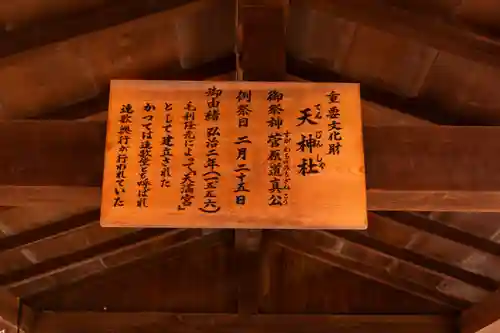 重要文化財
天神社
てんじんしゃ
御祭神 菅原道真公
すがわらみちざねこう
例祭日 二月二十五日
御由緒 弘治二年(一五五六)
毛利隆元によって"天満宮"
として建立された
かつては連歌堂とも呼ばれ
連歌興行が行われていた